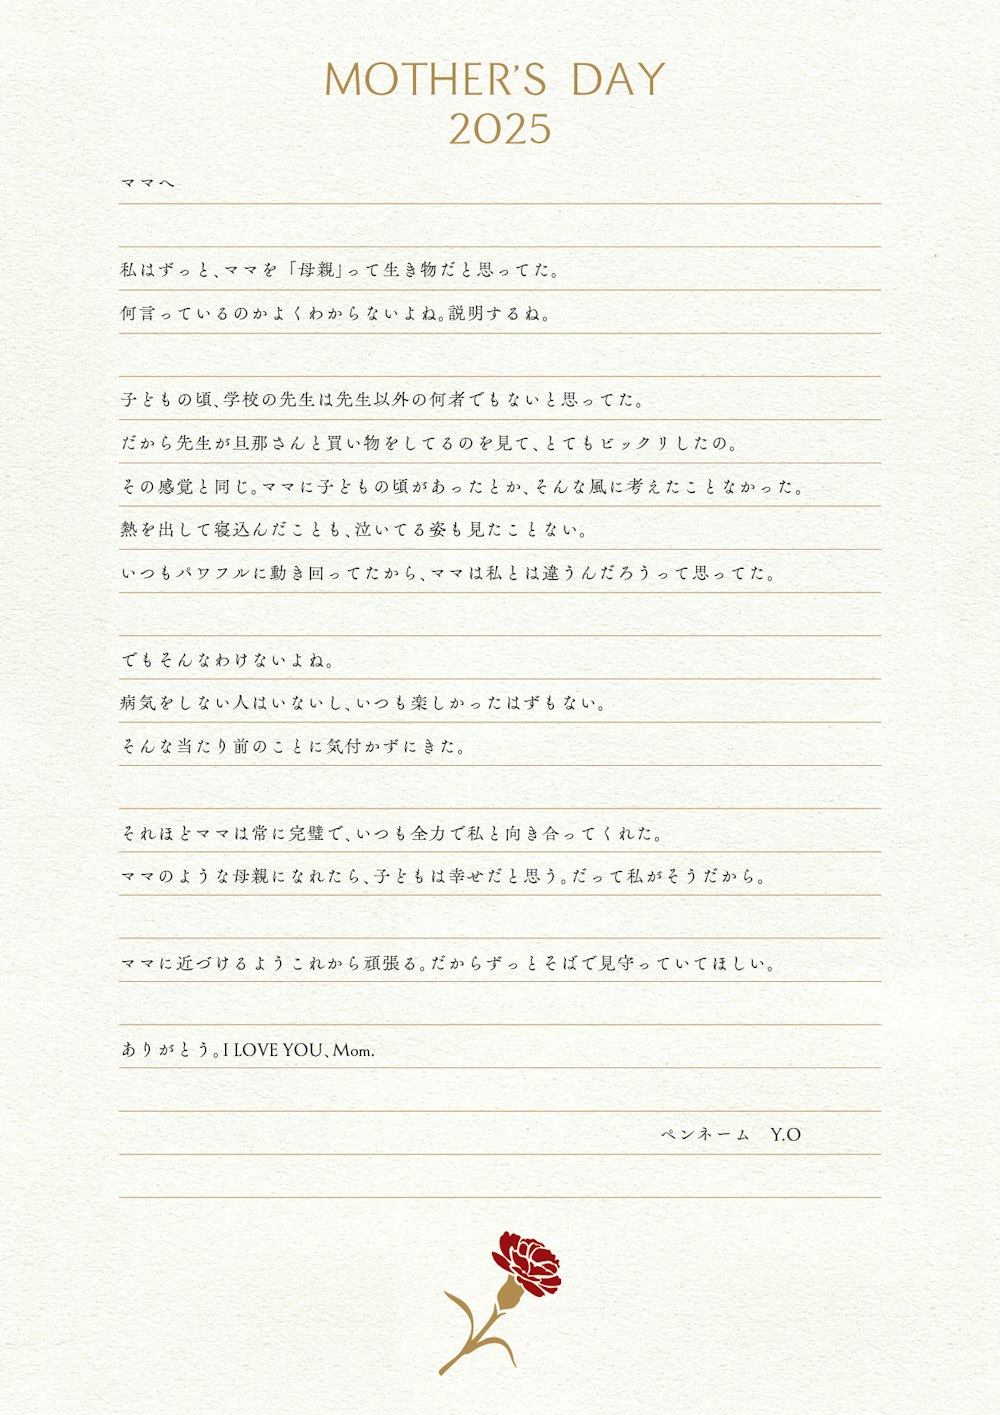 MOTHER'S DAY
2025
ママへ
私はずっと、ママを「母親」って生き物だと思ってた。
何言っているのかよくわからないよね。説明するね。
子どもの頃、学校の先生は先生以外の何者でもないと思ってた。
だから先生が旦那さんと買い物をしてるのを見て、とてもビックリしたの。
その感覚と同じ。ママに子どもの頃があったとか、そんな風に考えたことなかった。
熱を出して寝込んだことも、泣いてる姿も見たことない。
いつもパワフルに動き回ってたから、ママは私とは違うんだろうって思ってた。
でもそんなわけないよね。
病気をしない人はいないし、いつも楽しかったはずもない。
そんな当たり前のことに気付かずにきた。
それほどママは常に完璧で、いつも全力で私と向き合ってくれた。
ママのような母親になれたら、子どもは幸せだと思う。だって私がそうだから。
ママに近づけるようこれから頑張る。だからずっとそばで見守っていてほしい。
ありがとう。I LOVE YOU、Mom.
ペンネーム　Y.O